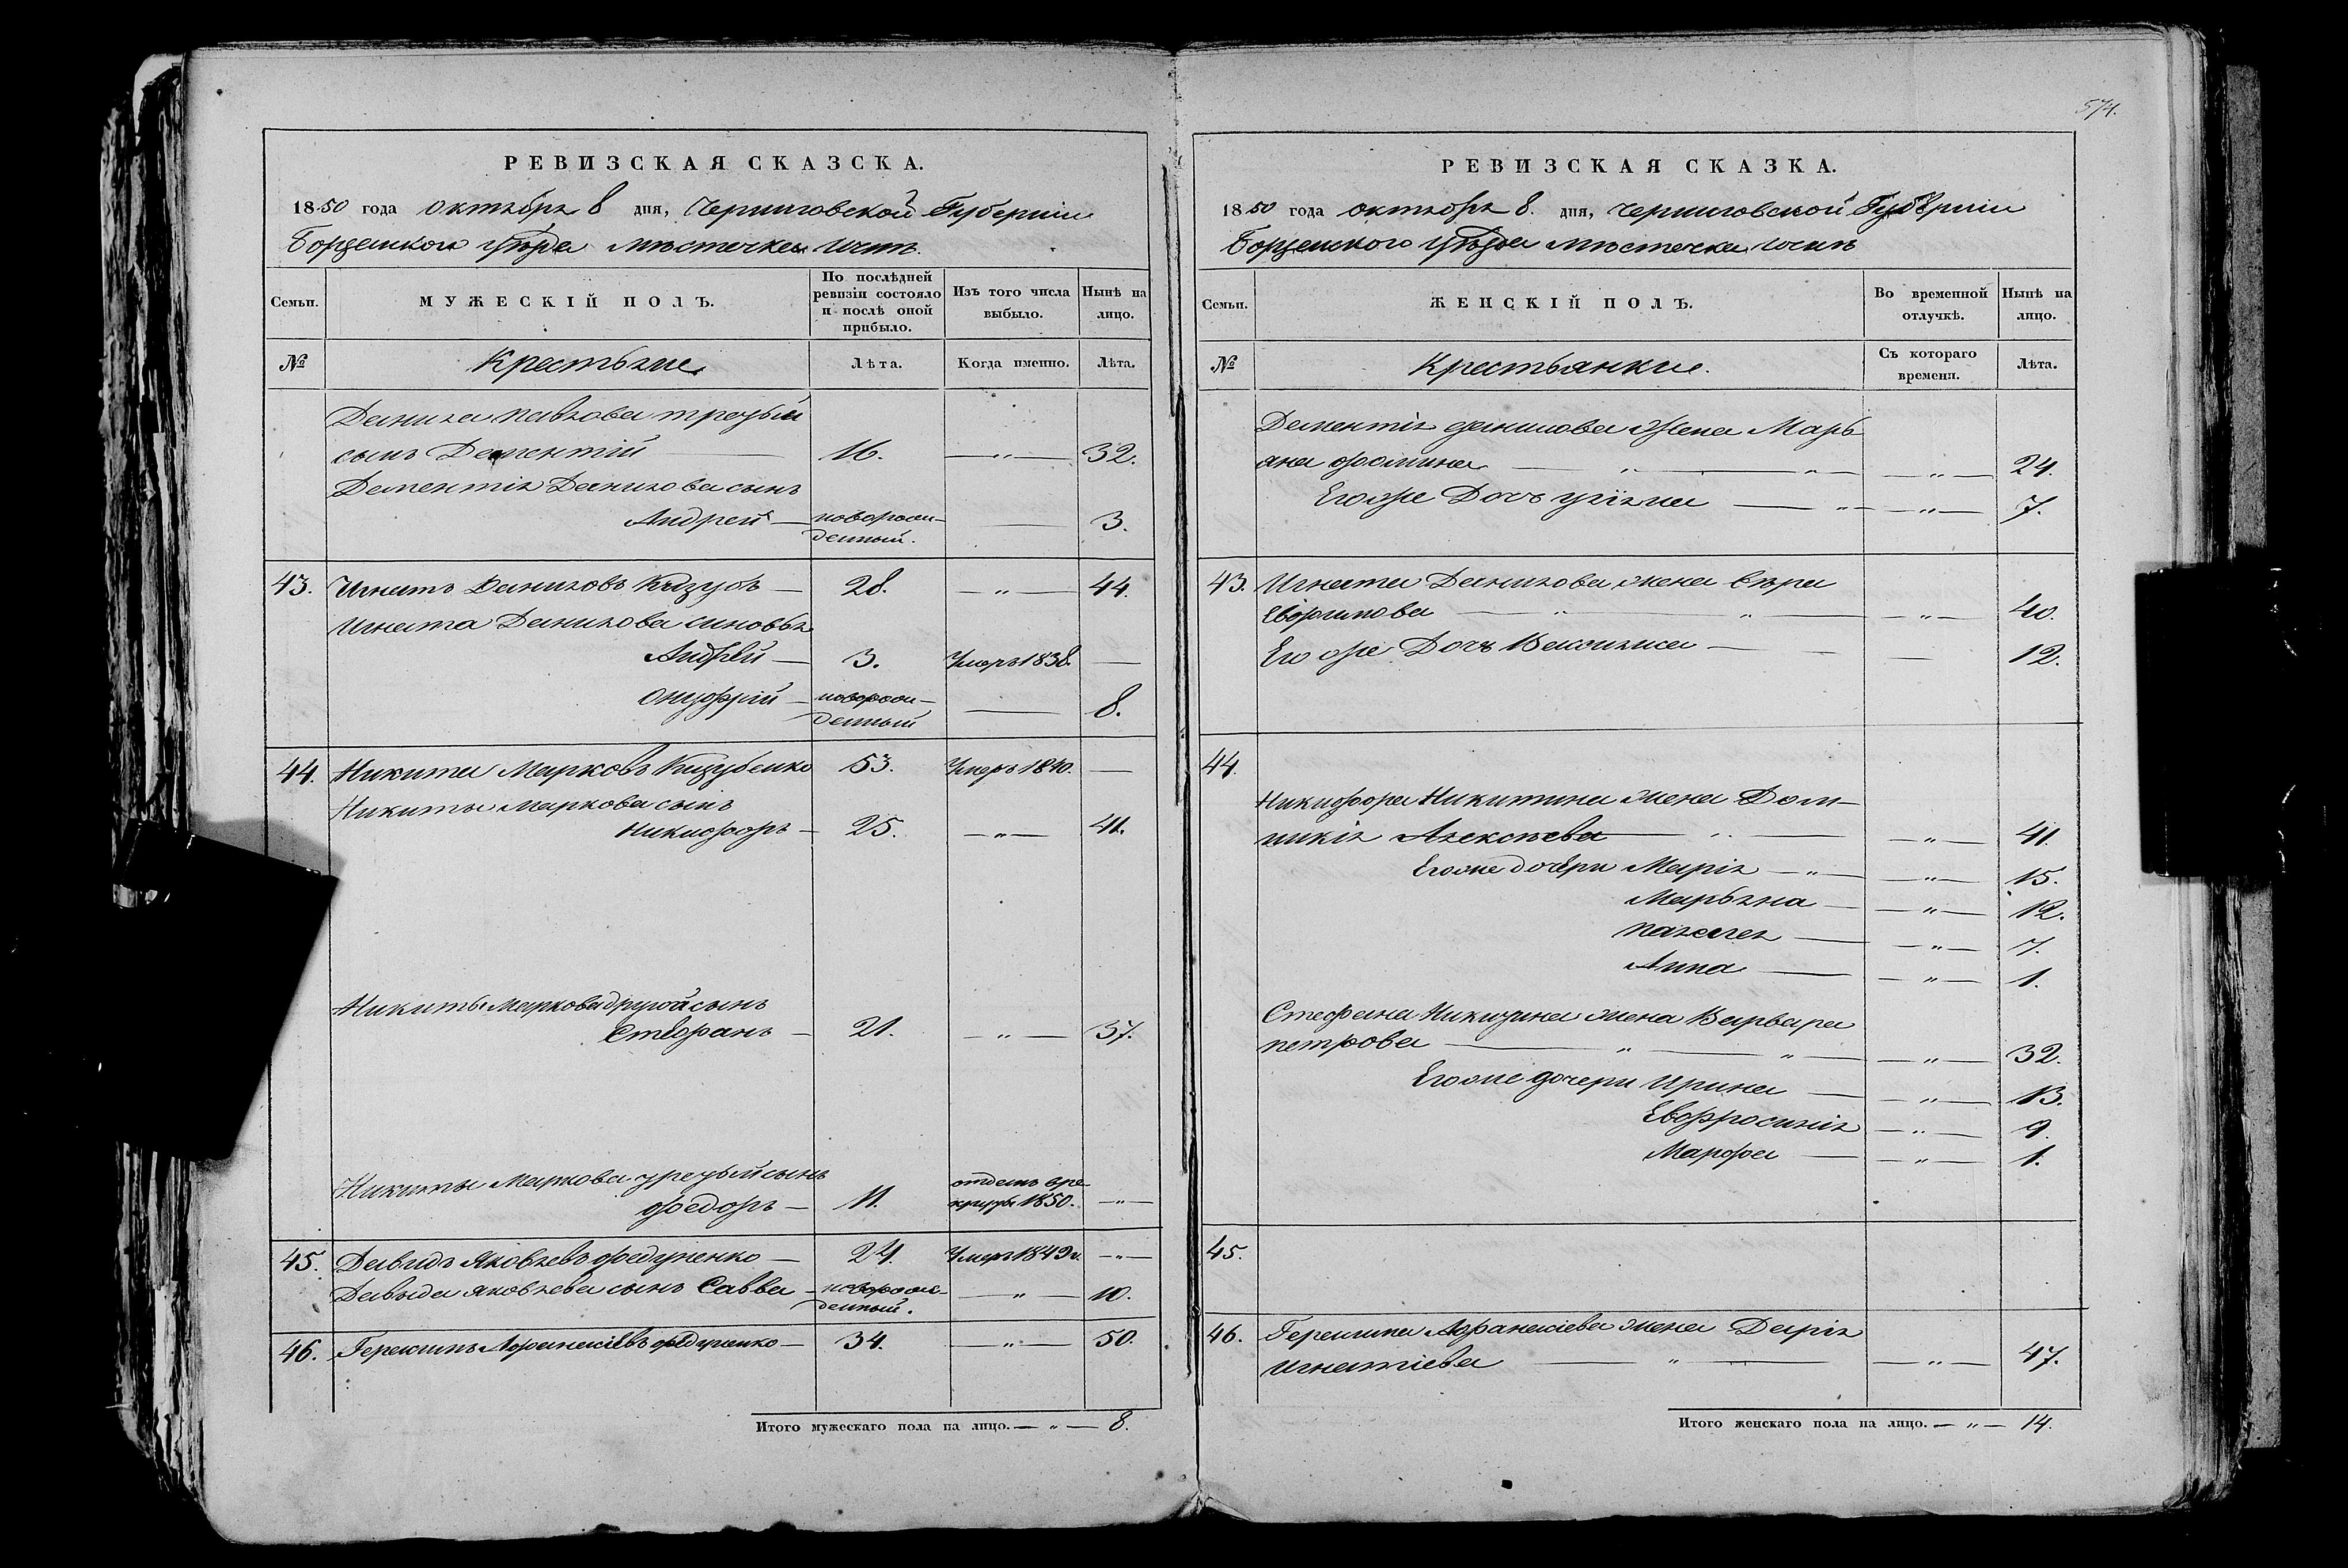 574.
РЕВИЗСКАЯ СКАЗСКА.
1850 года октября 8 дня, Черниговской Губерніи
Борзенского уѣзда мѣстечка Ични.
Семьи.
МУЖЕСКІЙ ПОЛЪ.
По послѣдней ревизіи состояло и послѣ оной прибыло.
Изъ того числа выбыло.
Нынѣ на лицо.
№ Крестьяне Лѣта. Когда именно. Лѣта.
Данила Павлова третьій
сынъ Дементій 16. — " — 32.
Дементія Данилова сынъ
Андрей — новорож-
денный. — 3.
43. Игнатъ Даниловъ Кизубъ — 28. — " — 44.
Игната Данилова сыновья
Андрѣй — 3. Умеръ 1838. —
Онуфрій — новорож-
денный — 8.
44. Никита Марковъ Кизубенко 53. Умеръ 1840. —
Никиты Маркова сынъ
Никифоръ — 25. — " — 41.
Никиты Маркова другой сынъ
Стефанъ — 21. — " — 37.
Никиты Маркова третьій сынъ
Федоръ — 11. отданъ в ре-
круты 1850. — " —
45. Давидъ Яковлевъ Федченко — 24. Умеръ 1849 г. — " —
Давыда Яковлева сынъ Савва — новорож-
денный. — " — 10.
46. Герасимъ Афанасіевъ Федченко — 34. — " — 50.
Итого мужескаго пола на лицо. — " — 8.
РЕВИЗСКАЯ СКАЗКА.
1850 года октября 8. дня, Черниговской Губѣрніи
Борзенского уѣзда мѣстечка Ични
Семьи.
ЖЕНСКІЙ ПОЛЪ.
Во временной отлучкѣ.
Нынѣ на лицо.
№ Крестьянки. Съ котораго времени. Лѣта.
Дементія Данилова Жена Марь-
яна Фомина — " — " — — " — 24.
Его же Дочь Уліяна — " — — " — 7.
43. Игната Данилова жена Вѣра
Евфимова — " — " — — " — 40.
Его же Дочь Василиса — — — 12.
44.
Никифора Никитина жена Дом-
никія Алексѣева — " — — " — 41.
Его же дочѣри Марія — " — — " — 15.
Марьяна — — " — 12.
Палагея — — " — 7.
Анна — — " — 1.
Стефана Никитина жена Варвара
Петрова — " — " — — " — 32.
Его же дочери Ирина — — " — 13.
Евфросинія — " — 9.
Марфа — — " — 1.
45.
46. Герасима Афанасіева жена Дарія
Игнатіева — " — — " — 47.
Итого женскаго пола на лицо. — " — 14.